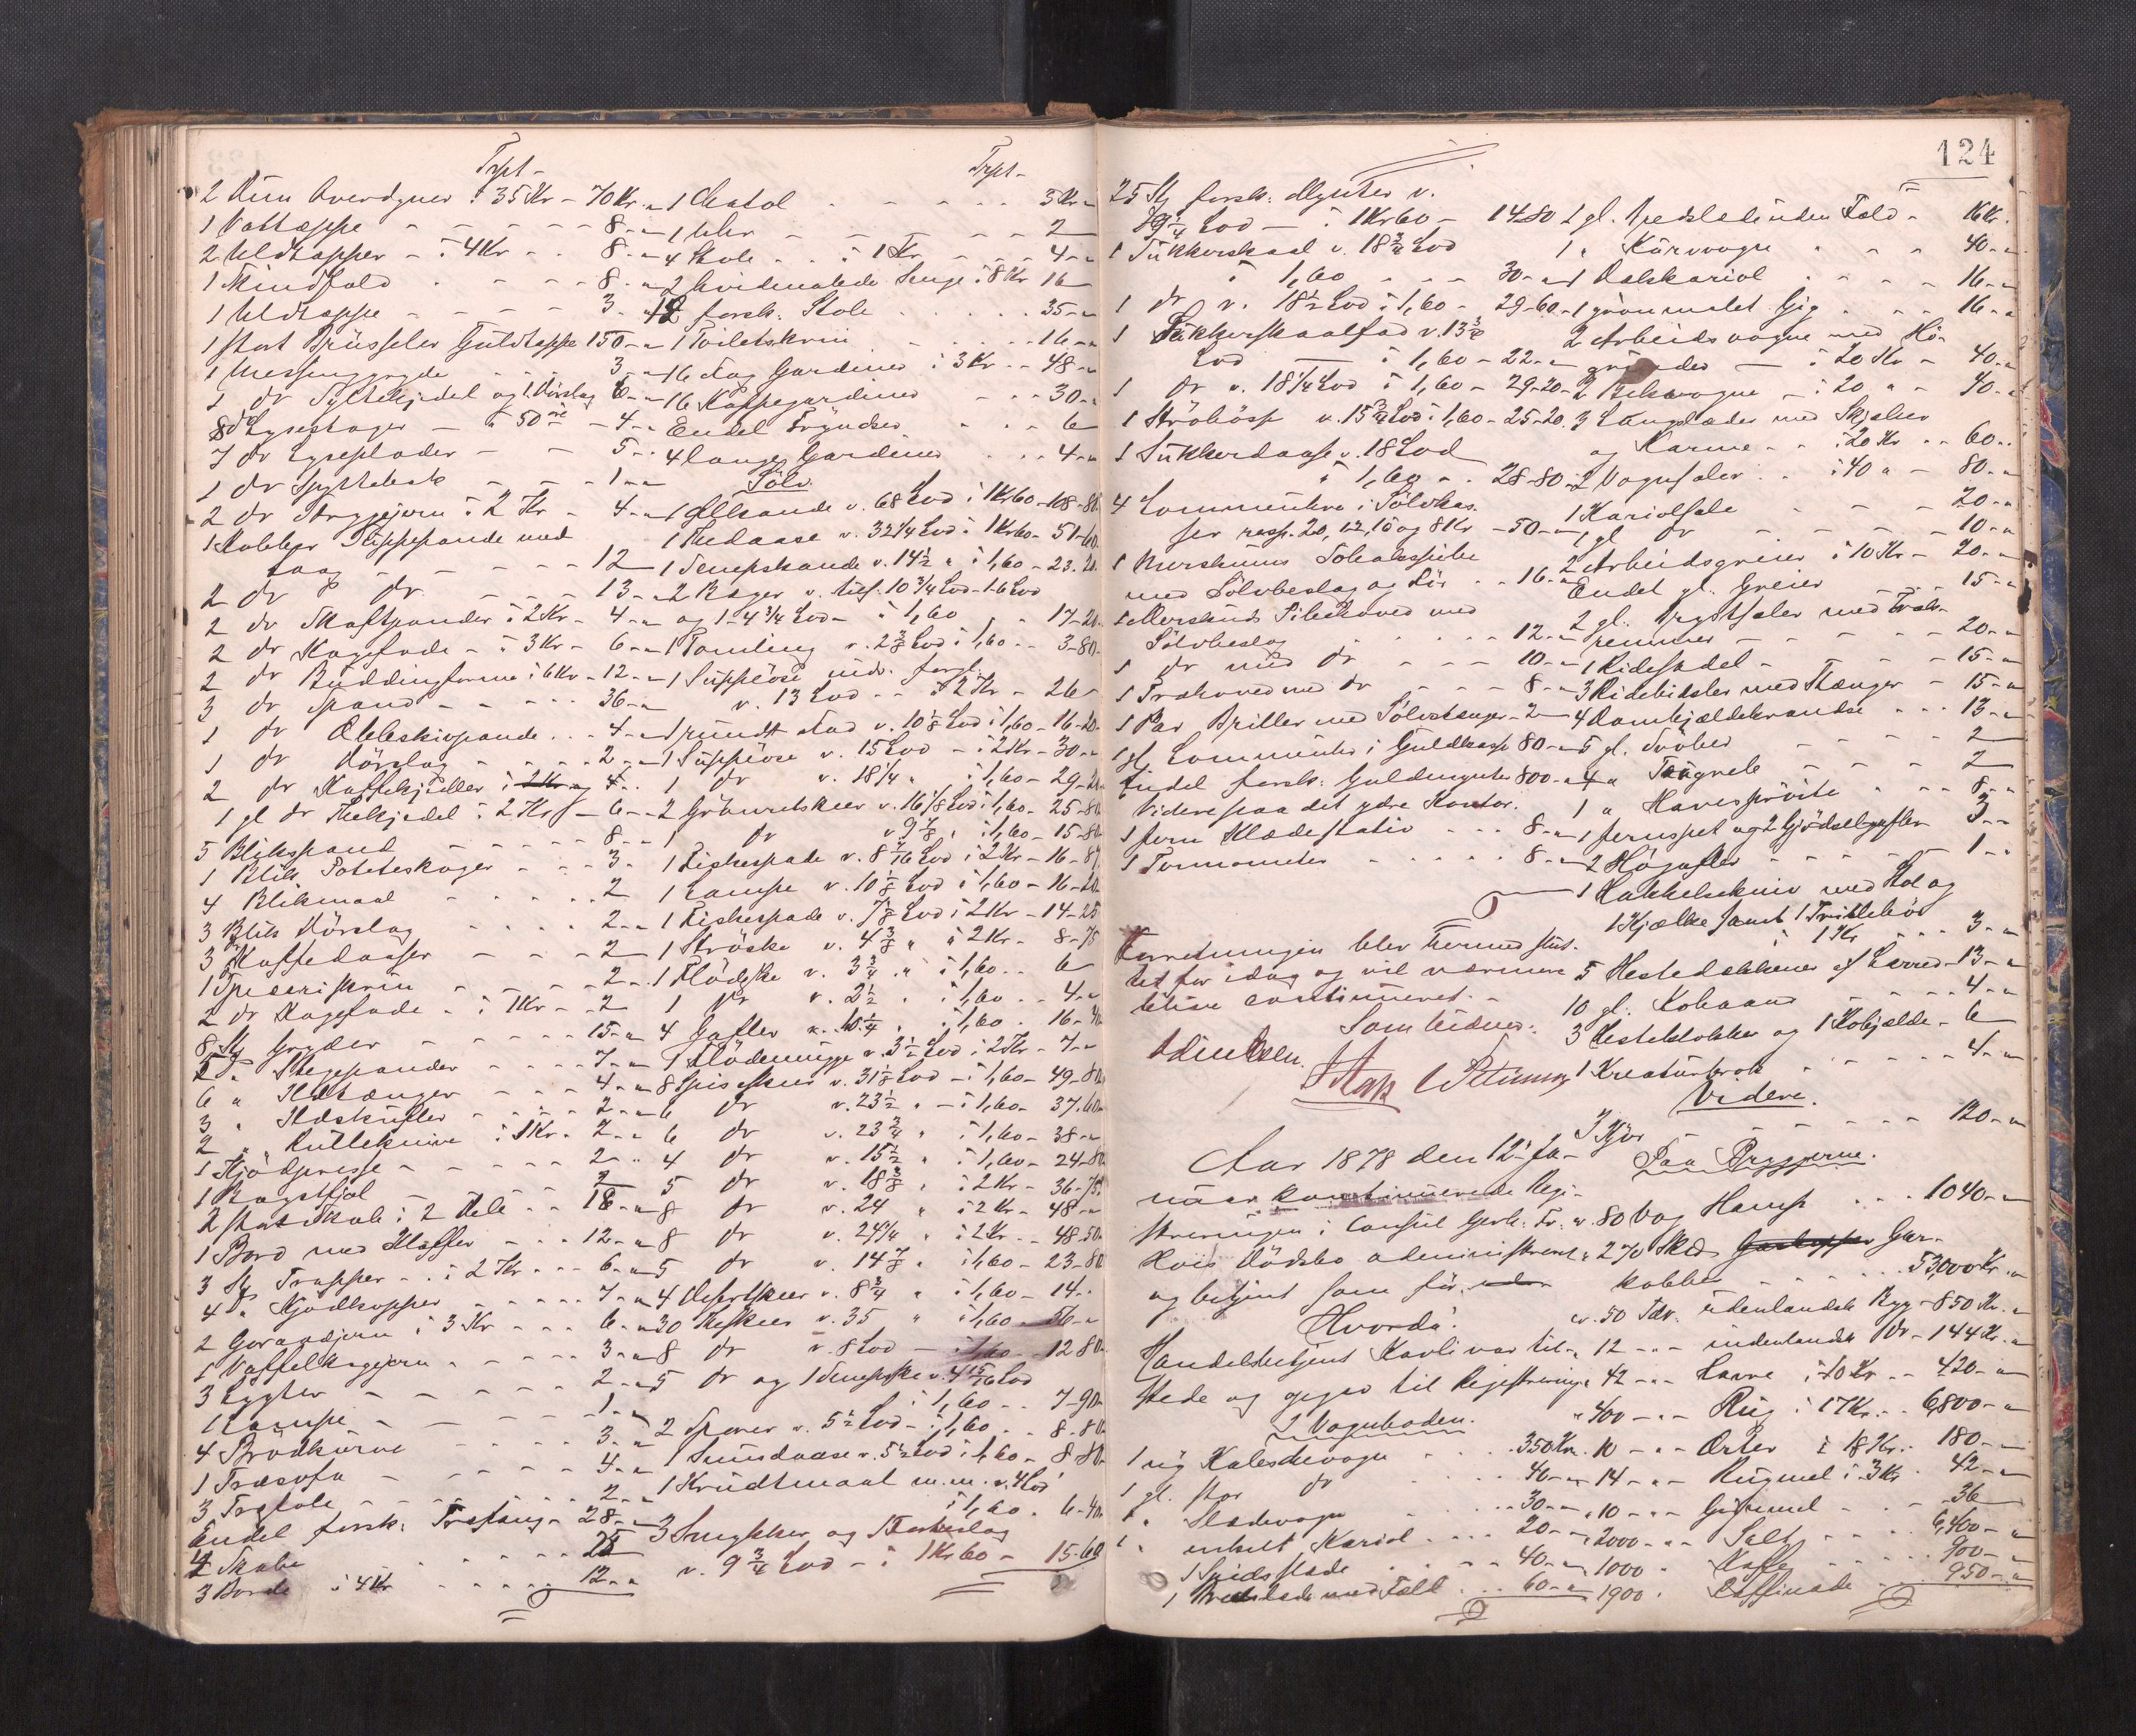 Trpt-
2 Duun Overdyner à 35 Kr - 70 Kr. "
1 Vattæppe - - - 8 - "
2 Uldtæpper - à 4 Kr - - 8 - "
1 Skindfeld - - - 8 - "
1 Uldtæppe - - - 3 - "
1 stort Brüsseler Gulvtæppe 150 - "
1 Messinggryde - - 3 - "
1 do Syltekjedel og 1 Dörslag 6 - "
8 do Lysestager - à 50 øre - 4 - "
7 do Lyseplader - - 5 - "
1 do Spyttebak - - 1 - "
2 do Strygejern à 2 Kr - 4 - "
1 Kobber Suppepande med
Laag - - - - 12
2 do do - - - 13 - "
2 do Skaftpander à 2 Kr - 4 - "
2 do Kagefade - à 3 Kr - 6 - "
2 do Buddingforme à 6 Kr - 12 - "
3 do Spand - - - 36 - "
1 do Æbleskivpande - - 4 - "
1 do Dörslag - - - 2 - "
2 do Kaffekjedler - 4 - "
1 gl do Thekjedel à 2 Kr - 6 - "
5 Blikspand - - - 8 - "
1 Blik Poteteskoger - - 3 -
4 Blikmaal - - - 2
3 Blik Dörslag - - - 2 - "
3 do Kaffedaaser - - - 2
1 Speceriskrin - - - 2 - "
2 do Kagefade - à 1 Kr - 2
8 St Gryder - - - 15 - "
2 " Stegepander - - - 7 - "
6 " Ildtænger - - - 4 - "
3 " Ildskufler - - - 2 - "
2 " Rulleknive à 1 Kr - 2 - "
1 Kjödpresse - - - 2 - "
1 Bagstfjöl - - - 2
2 stort Skab i 2 Dele - - 18 - "
1 Bord med Klaffer - - 12 - "
3 St Trapper - - à 2 Kr - - 6 - "
4 " Kjödkopper - - - 7 - "
2 Goraadjern à 3 Kr - - 6 - "
1 Vaffelkagejern - - - 3 - "
3 Lygter - - - 2 - "
1 Lampe - - - 1 - "
4 Brödkurve - - - 3 - "
1 Træsofa - - - 4 - "
3 Træstole - - - 2 - "
Endel forsk: Træfang - 28 - "
4 Skabe - - - 25
3 Borde à 4 Kr - - - 12 - "
Trpt-
1 Chatol - - - 3 Kr "
1 Uhr - - - 2
4 Stole - - à 1 Kr - - 4 - "
2 hvidmalede Senge à 8 Kr 16
12 forsk: Stole - - - 35 - "
1 Toiletskrin - - - 16 - "
16 Fag Gardiner à 3 Kr - - 48 - "
16 Kappegardiner - - - 30 - "
Endel Fryndser - - - 6
4 lange Gardiner - - - 4 - "
Sölv.
1 Ölkande v. 68 Lod à 1 Kr 60 - 108 - 80
1 Thedaase v. 32 1/4 Lod à 1 Kr 60 - 51 - 60
1 Senepskande v. 14 1/2 " à 1,60 - 23. 20
2 Bæger v. tils. 10 3/4 Lod - 1 6 Lod
og 1 - 4 3/4 Lod - à 1,60 - 17 - 20
1 Tomling v. 2 3/8 Lod à 1,60 - - 3 - 80
1 Suppeöse indv. forgl.
v. 13 Lod - - à 2 Kr - 26 -
1 rundt Fad v. 10 1/8 Lod à 1,60 - 16 - 20
1 Suppeöse v. 15 Lod - à 2 Kr - 30 - "
1 do v. 18 1/4 " à 1,60 - 29 - 20
2 Grönnetskeer v. 16 1/8 Lod à 1,60 - 25 - 80
1 do v. 9 7/8 " à 1,60 - 15 - 80
1 Fiskespade v. 8 7/16 Lod à 2 Kr - 16 - 87
1 Lampe v. 10 1/8 Lod à 1,60 - 16 - 20
1 Fiskespade v. 7 1/8 Lod à 2 Kr - 14 - 25
1 Ströske v. 4 3/8 " à 2 Kr - 8 - 75
1 Flödeske v. 3 3/4 " à 1,60 - - 6
1 do v. 2 1/2 " à 1,60 - - 4 - "
4 Gafler v. 10 1/4 " à 1,60 - 16 - 40
1 Flödemugge v. 3 1/2 Lod à 2 Kr - 7 - "
8 Spiseskeer v. 31 1/8 Lod - à 1,60 - 49 - 80
6 do v. 23 1/2 " - à 1,60 - 37. 60
6 do v. 23 3/4 " à 1,60 - 38 - "
4 do v. 15 1/2 " à 1,60 - 24 - 80
5 do v. 18 3/8 " à 2 Kr - 36 - 75
8 do v. 24 " à 2 Kr - 48 - "
8 do v. 24 1/4 " à 2 Kr - - 48 - 50
5 do v. 14 7/8 " à 1,60 - 23 - 80
4 Desertskeer v. 8 3/4 " à 1,60 - 14 - "
30 Theskeer v. 35 " à 1,60 - 56 - "
8 do v. 8 Lod - à 1,60 - - 12 80
5 do og 1 Senepske v. 4 15/16 Lod
à 1,60 - - 7 - 90
2 Sporer v. 5 1/2 Lod - à 1,60 - - 8 - 80
1 Snusdaase v. 5 1/2 Lod à 1,60 - 8 - 80
1 Krudtmaal m. m. v. 4 Lod
à 1,60 - 6 - 40
3 Smykker og 1 Fadbeslag
v. 9 3/4 Lod - à 1 Kr 60 - 15 - 60
124
25 St forsk: Mynter v.
89 1/4 Lod - à 1 Kr 60 - 142 80
1 Sukkerskaal v. 18 3/4 Lod
à 1,60 - - - 30 - "
1 do v. 18 1/2 Lod à 1,60 - 29 - 60 -
1 Sukkerskaalfad v. 13 3/4
Lod - à 1,60 - 22 - "
1 do v. 18 1/4 Lod à 1,60 - 29 - 20 -
1 Ströbösse v. 15 3/4 Lod à 1,60 - 25 - 20
1 Sukkerdaase v. 18 Lod
à 1,60 - - 28 - 80 -
4 Lommeuhre i Sölvkas-
ser resp. 20, 12, 10 og 8 Kr - 50 - "
1 Merskums Tobakspibe
med Sölvbeslag og Rör - - 16 - "
1 Merskums Pibehoved med
Sölvbeslag - - - 12 - "
1 do med do - - - 10 - "
1 Træhoved med do - - - 8 - "
1 Par Briller med Sölvstænger - 2
1 gl. Lommeuhr i Guldkasse 80 - "
Endel forsk: Guldmynter 800 - "
Videre paa det ydre Kontor.
1 Jern Klædestativ - - - 8 - "
1 Termometer - - - 8 - "
Forretningen blev hermed slut-
tet for idag og vil nærmere
blive continueret. -
Som Vidner:
Aar 1878 den 12te Ja-
nuar kontinuerede Regi-
streringen i Consul Gerh: Fr:
Kriis Dödsbo administreret
og betjent som för.
Hvorda:
Handelsbetjent Kavli var til-
stede og opgav til Registrering
I Vognboden.
1 ny Kaleschevogn - - 350 Kr.
1 gl. stor do - - - 40 - "
1 " Slædevogn - - - 30 - "
1 " enkelt Kariol - - - 20 - "
1 Spidsslæde - - - 40 - "
1 Bredslæde med Feld - - 60 - "
1 gl. Bredslæde uden Feld - 16 Kr.
1 " Kurvvogn - - - 40 - "
1 Dalskariol - - - 16 - "
1 grönmalet Gig - - - 16 - "
2 Arbeidsvogne med Hö-
grinder - à 20 Kr - 40 - "
2 Bekvogne - à 20 " - 40 - "
3 Langslæder med Skjelker
og Karme - - à 20 Kr - - 60 - "
2 Vognseler - - à 40 " - 80 - "
1 Kariolsele - - - 20 - "
1 gl do - - - 10 - "
2 Arbeidsgreier à 10 Kr - 20 - "
Endel gl. Greier - - - 15 - "
2 gl. Brystseler med Træk-
remmer - - - 20 - "
1 Ridesadel - - - 15 - "
3 Ridebidsler med Stænger - 15 - "
4 Dombjældekrandse - - - 13 - "
5 gl. Svöber - - - 2
4 " Trugreb - - - 2
1 " Havespröite - - - 8 - "
1 Jernspet og 2 Gjödselgafler 3 - "
2 Högafler - - - 1 - "
1 Hakkelsekniv med Stol og
1 Kjælke samt 1 Trillebör
à 1 Kr - - - 3 - "
5 Hestedækkener af Lærred - 13 - "
10 gl. Kobaand - - - 4 - "
3 Hesteklokker og 1 Kobjælde - 6
1 Kreaturbrok - - - 4 - "
Videre.
2 Kjör - - - 120 - "
Paa Bryggerne.
c. 80 Vog Hamp - - - 1040 - "
" 270 Skd Gar-
kobber - - - 53,000 Kr. "
c. 50 Tdr. udenlandsk Byg - 850 Kr. "
" 12 - " - indenlandsk do - 144 Kr. "
" 42 - " - Havre à 10 Kr - - 420 - "
" 400 - " - Rug à 17 Kr - - 6,800 - "
" 10 - " - Erter à 18 Kr - 180 -
" 14 - " - Rugmel à 3 Kr - 42 - "
" 10 - " - Gigtmel - - - 36
" 2000 - " - Salt - - - 6,400 - "
" 1000 " Kaffe - - - 900 - "
" 1900 " Raffinade - - - 950 - "